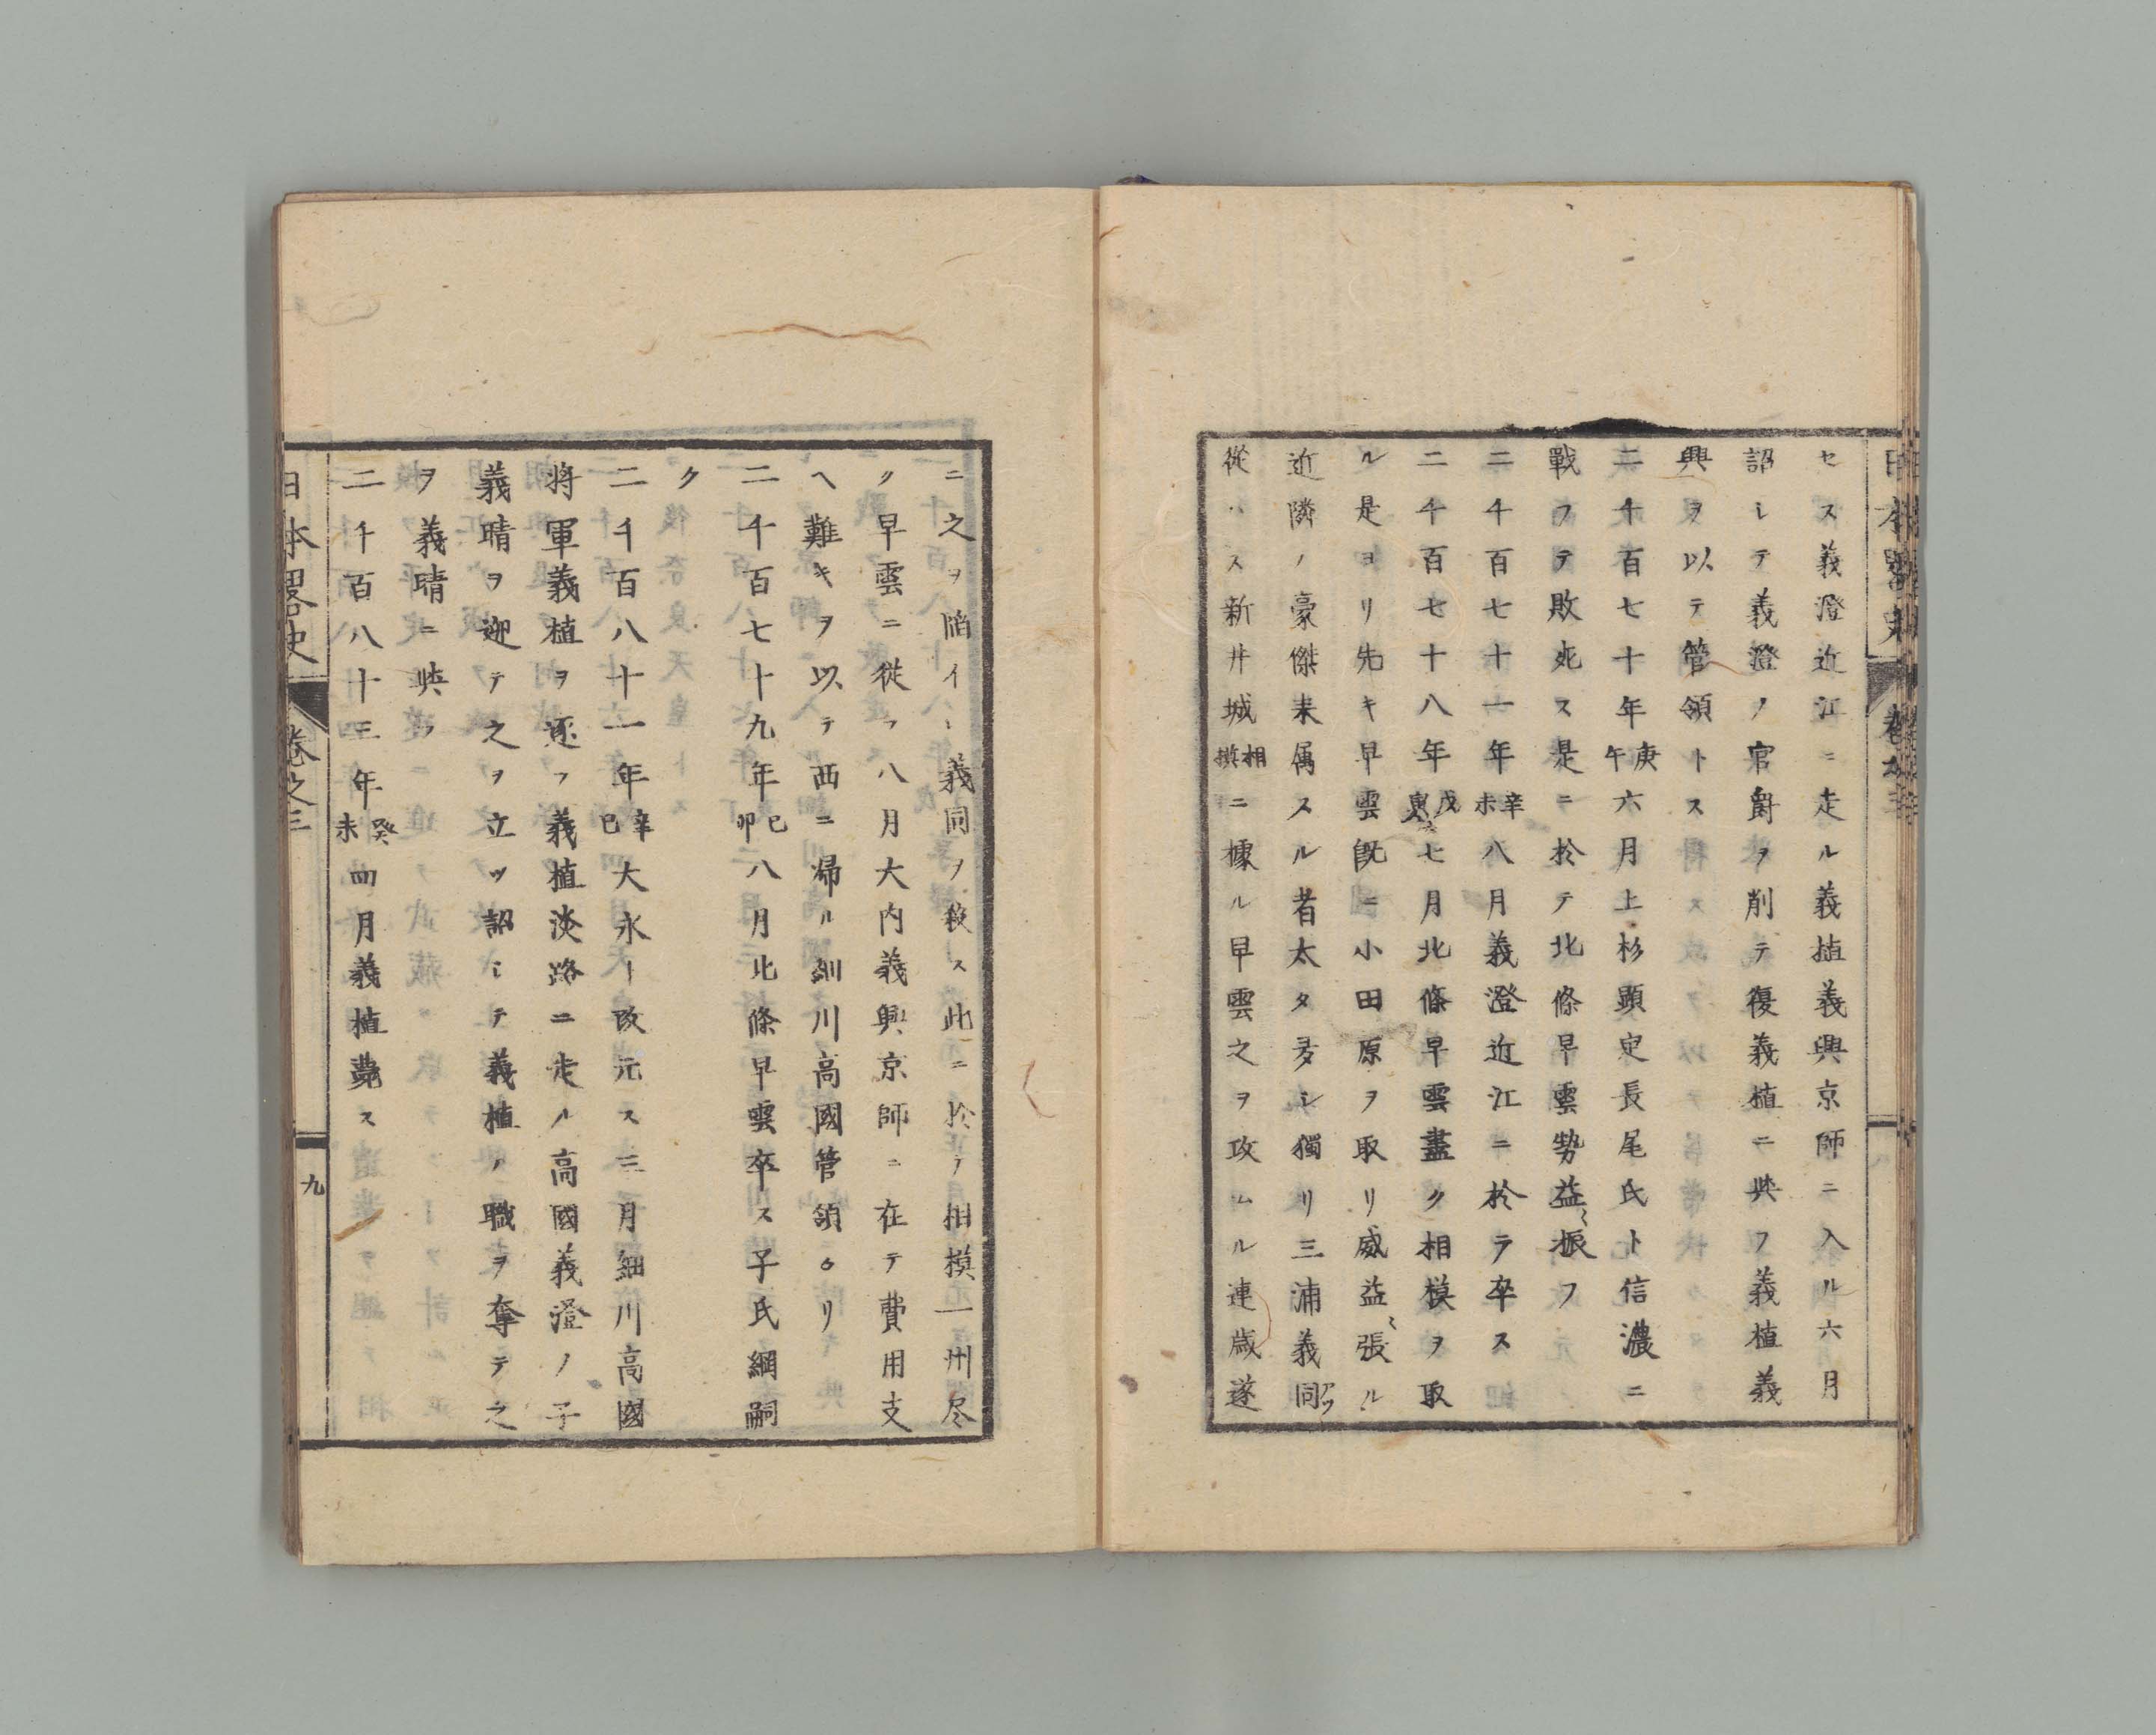 日本畧史 卷之三
セス義澄近江ニ走ル義植義興京師ニ入ル六月
詔シテ義澄ノ官爵ヲ削テ復義植ニ與フ義植義
興ヲ以テ管領トス
二千百七十年庚午六月上杉顯定長尾氏ト信濃ニ
戰フテ敗死ス是ニ於テ北條早雲勢益〻振フ
二千百七十一年辛未八月義澄近江ニ於テ卒ス
二千百七十八年戊寅七月北條早雲盡ク相模ヲ取
ル是ヨリ先キ早雲旣ニ小田原ヲ取リ威益〻張ル
近隣ノ豪傑来属スル者太タ多シ獨リ三浦義同アツ
從ハス新井城相摸ニ據ル早雲之ヲ攻ムル連歳遂
ニ之ヲ陷イレ義同ヲ殺ス此ニ於テ相模一州尽
ク早雲ニ從フ八月大内義興京師ニ在テ費用支
ヘ難キヲ以テ西ニ帰ル細川高國管領タリ
二千百七十九年己卯八月北條早雲卒ス子氏綱嗣
ク
二千百八十一年辛巳大永ト改元ス三月細川高國
將軍義植ヲ逐フ義植淡路ニ走ル高國義澄ノ子
義晴ヲ迎テ之ヲ立ツ詔シテ義植ノ職ヲ奪テ之
ヲ義晴ニ與フ
二千百八十三年癸未四月義植薨ス
日本畧史 卷之三 九